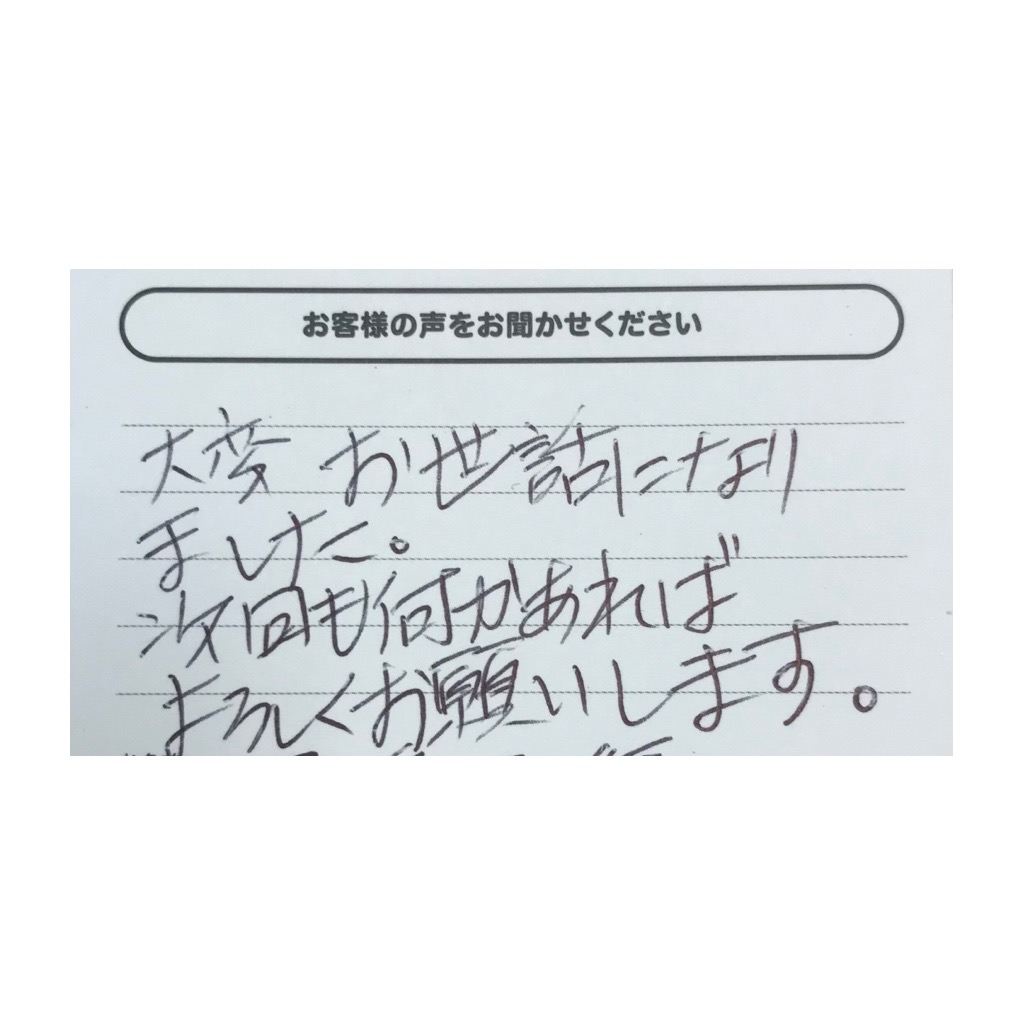 お客様の声をお聞かせください
大変お世話になり
ました。
次回も何かあれば
よろしくお願いします。